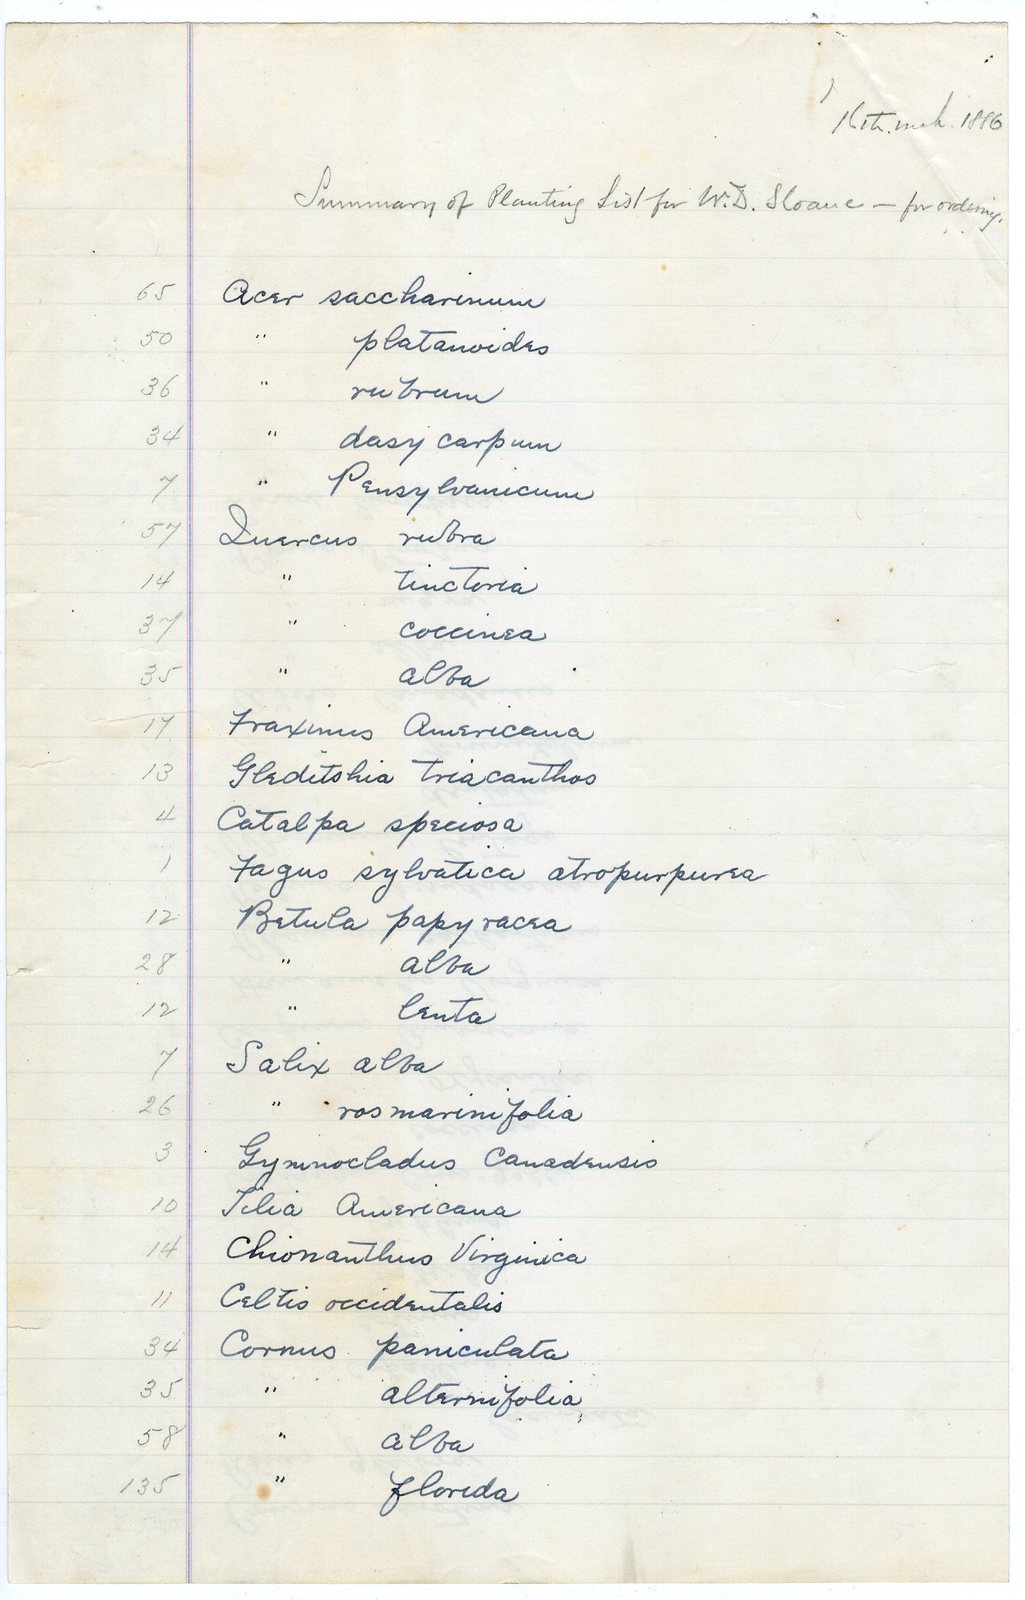 16th. mch. 1886
Summary of Planting List for W.D. Sloane — for ordering.
65 Acer saccharinum
50 " platanoides
36 " rubrum
34 " dasycarpum
7 " Pensylvanicum
57 Quercus rubra
14 " tinctoria
37 " coccinea
35 " alba
17 Fraxinus Americana
13 Gleditshia triacanthos
4 Catalpa speciosa
1 Fagus sylvatica atropurpurea
12 Betula papyracea
28 " alba
12 " lenta
7 Salix alba
26 " rosmarinifolia
3 Gymnocladus Canadensis
10 Tilia Americana
14 Chionanthus Virginica
11 Celtis occidentalis
34 Cornus paniculata
35 " alternifolia
58 " alba
135 " florida